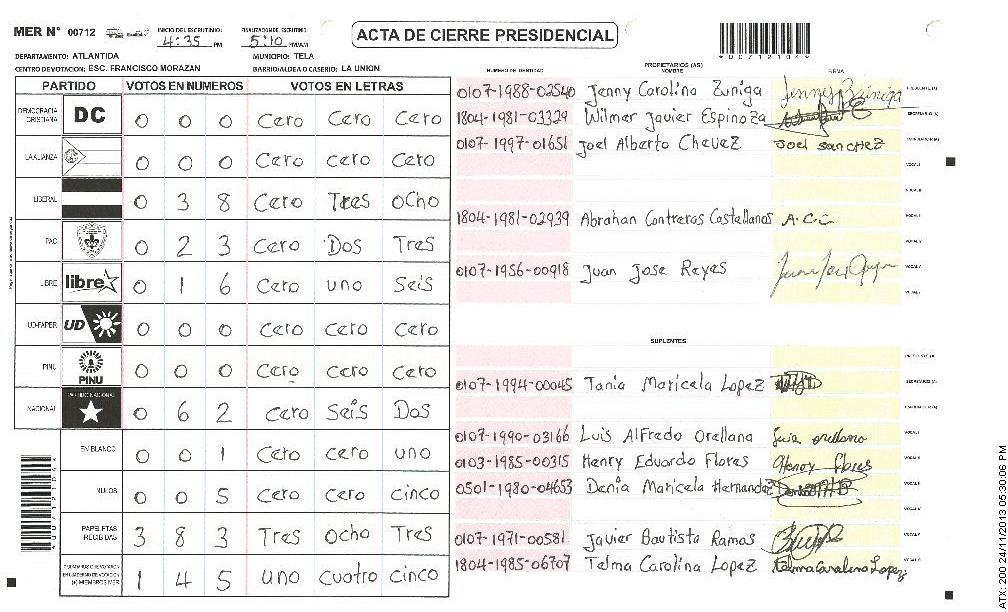 MER N° 00712
INICIO DEL ESCRUTINIO: 4:35 PM
FINALIZACION DE ESCRUTINIO: 5:10 PM/AM
ACTA DE CIERRE PRESIDENCIAL
DEPARTAMENTO: ATLANTIDA
MUNICIPIO: TELA
CENTRO DE VOTACION: ESC. FRANCISCO MORAZAN
BARRIO/ALDEA O CASERIO: LA UNION
PARTIDO VOTOS EN NUMEROS VOTOS EN LETRAS
DEMOCRACIA CRISTIANA DC 0 0 0 Cero Cero Cero
LA ALIANZA 0 0 0 Cero cero Cero
LIBERAL 0 3 8 Cero Tres Ocho
PAC 0 2 3 Cero Dos Tres
LIBRE libre 0 1 6 Cero uno Seis
UD-FAPER UD 0 0 0 Cero Cero Cero
PINU PINU 0 0 0 Cero cero Cero
NACIONAL PARTIDO NACIONAL 0 6 2 Cero Seis Dos
EN BLANCO 0 0 1 Cero cero uno
NULOS 0 0 5 Cero Cero cinco
PAPELETAS RECIBIDAS 3 8 3 Tres Ocho Tres
1 4 5 uno Cuatro cinco
NUMERO DE IDENTIDAD
PROPIETARIOS (AS)
NOMBRE
FIRMA
0107-1988-02540 Jenny Carolina Zuniga
1804-1981-03329 Wilmer Javier Espinoza
0107-1997-01651 Joel Alberto Chevez Joel Sanchez
1804-1981-02939 Abrahan Contreras Castellanos A.C.C
0107-1956-00918 Juan Jose Reyes
SUPLENTES
0107-1994-00045 Tania Maricela Lopez
0107-1990-03166 Luis Alfredo Orellana Luis orellana
0103-1985-00315 Henry Eduardo Flores Henry flores
0501-1980-04653 Denia Maricela Hernandez
0107-1971-00581 Javier Bautista Ramos
1804-1985-06707 Telma Carolina Lopez Telma Carolina Lopez
ATX: 200 24/11/2013 05:30:06 PM